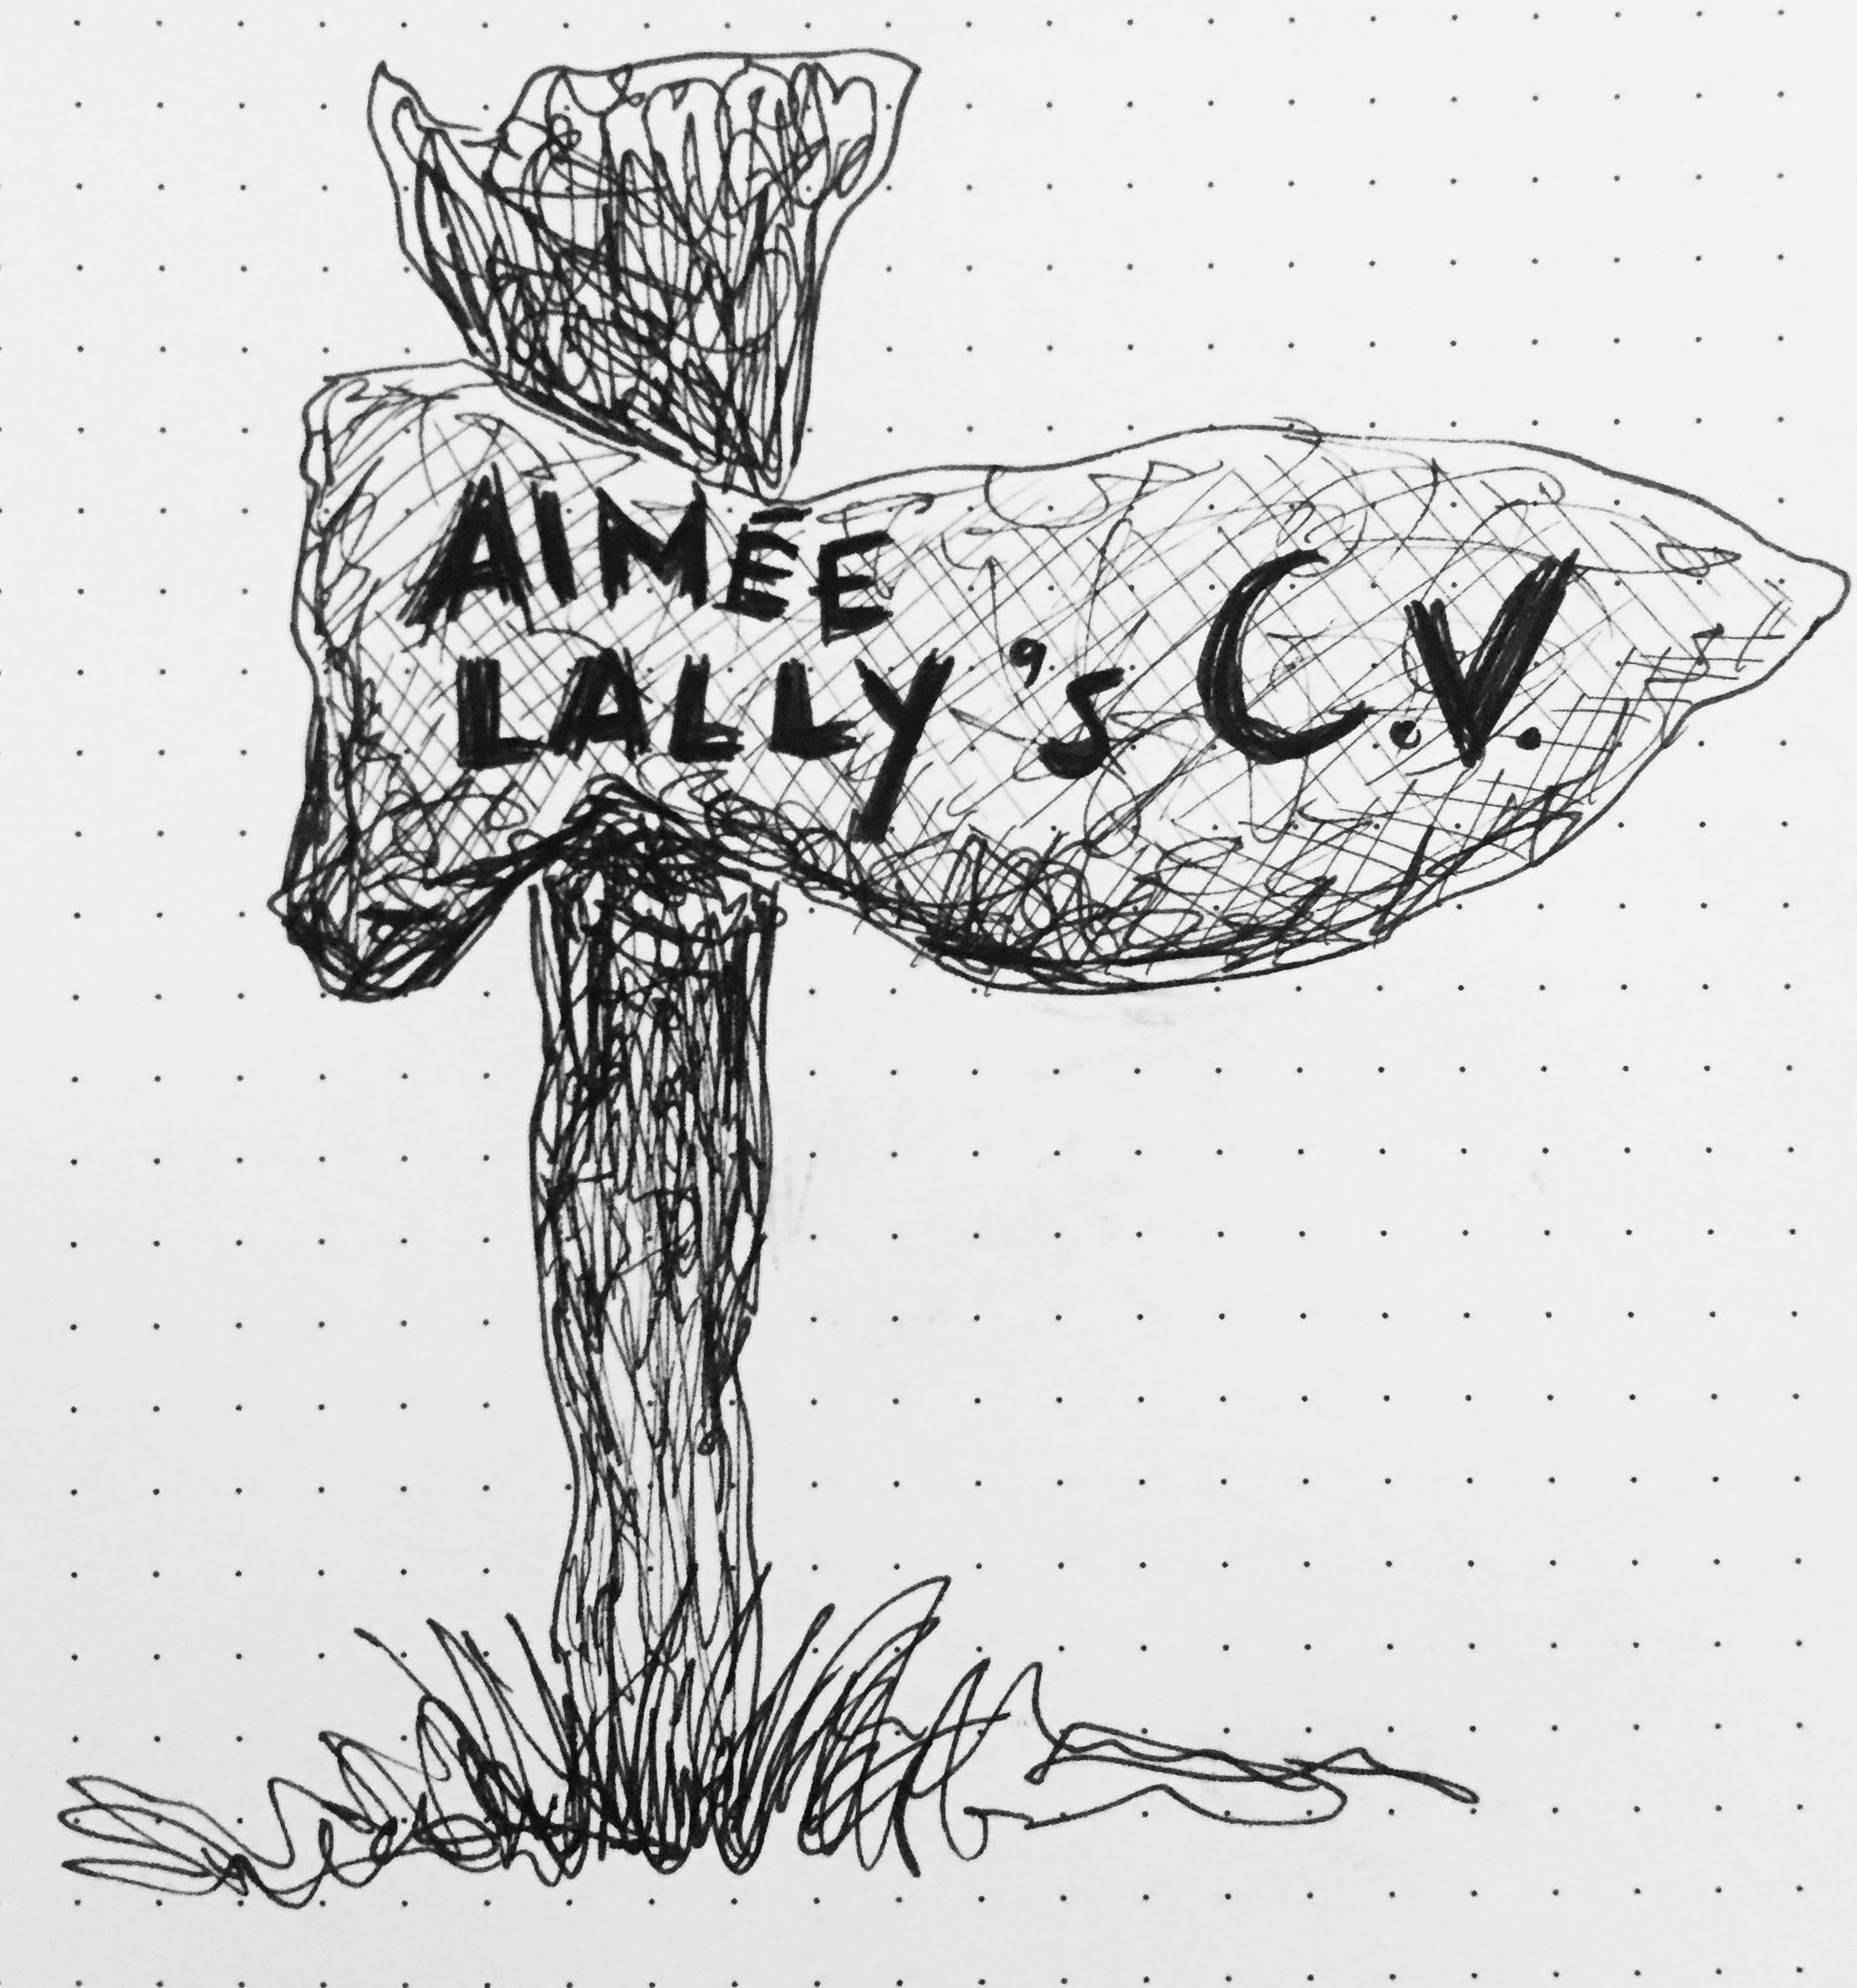 AIMÉE
LALLY's C.V.